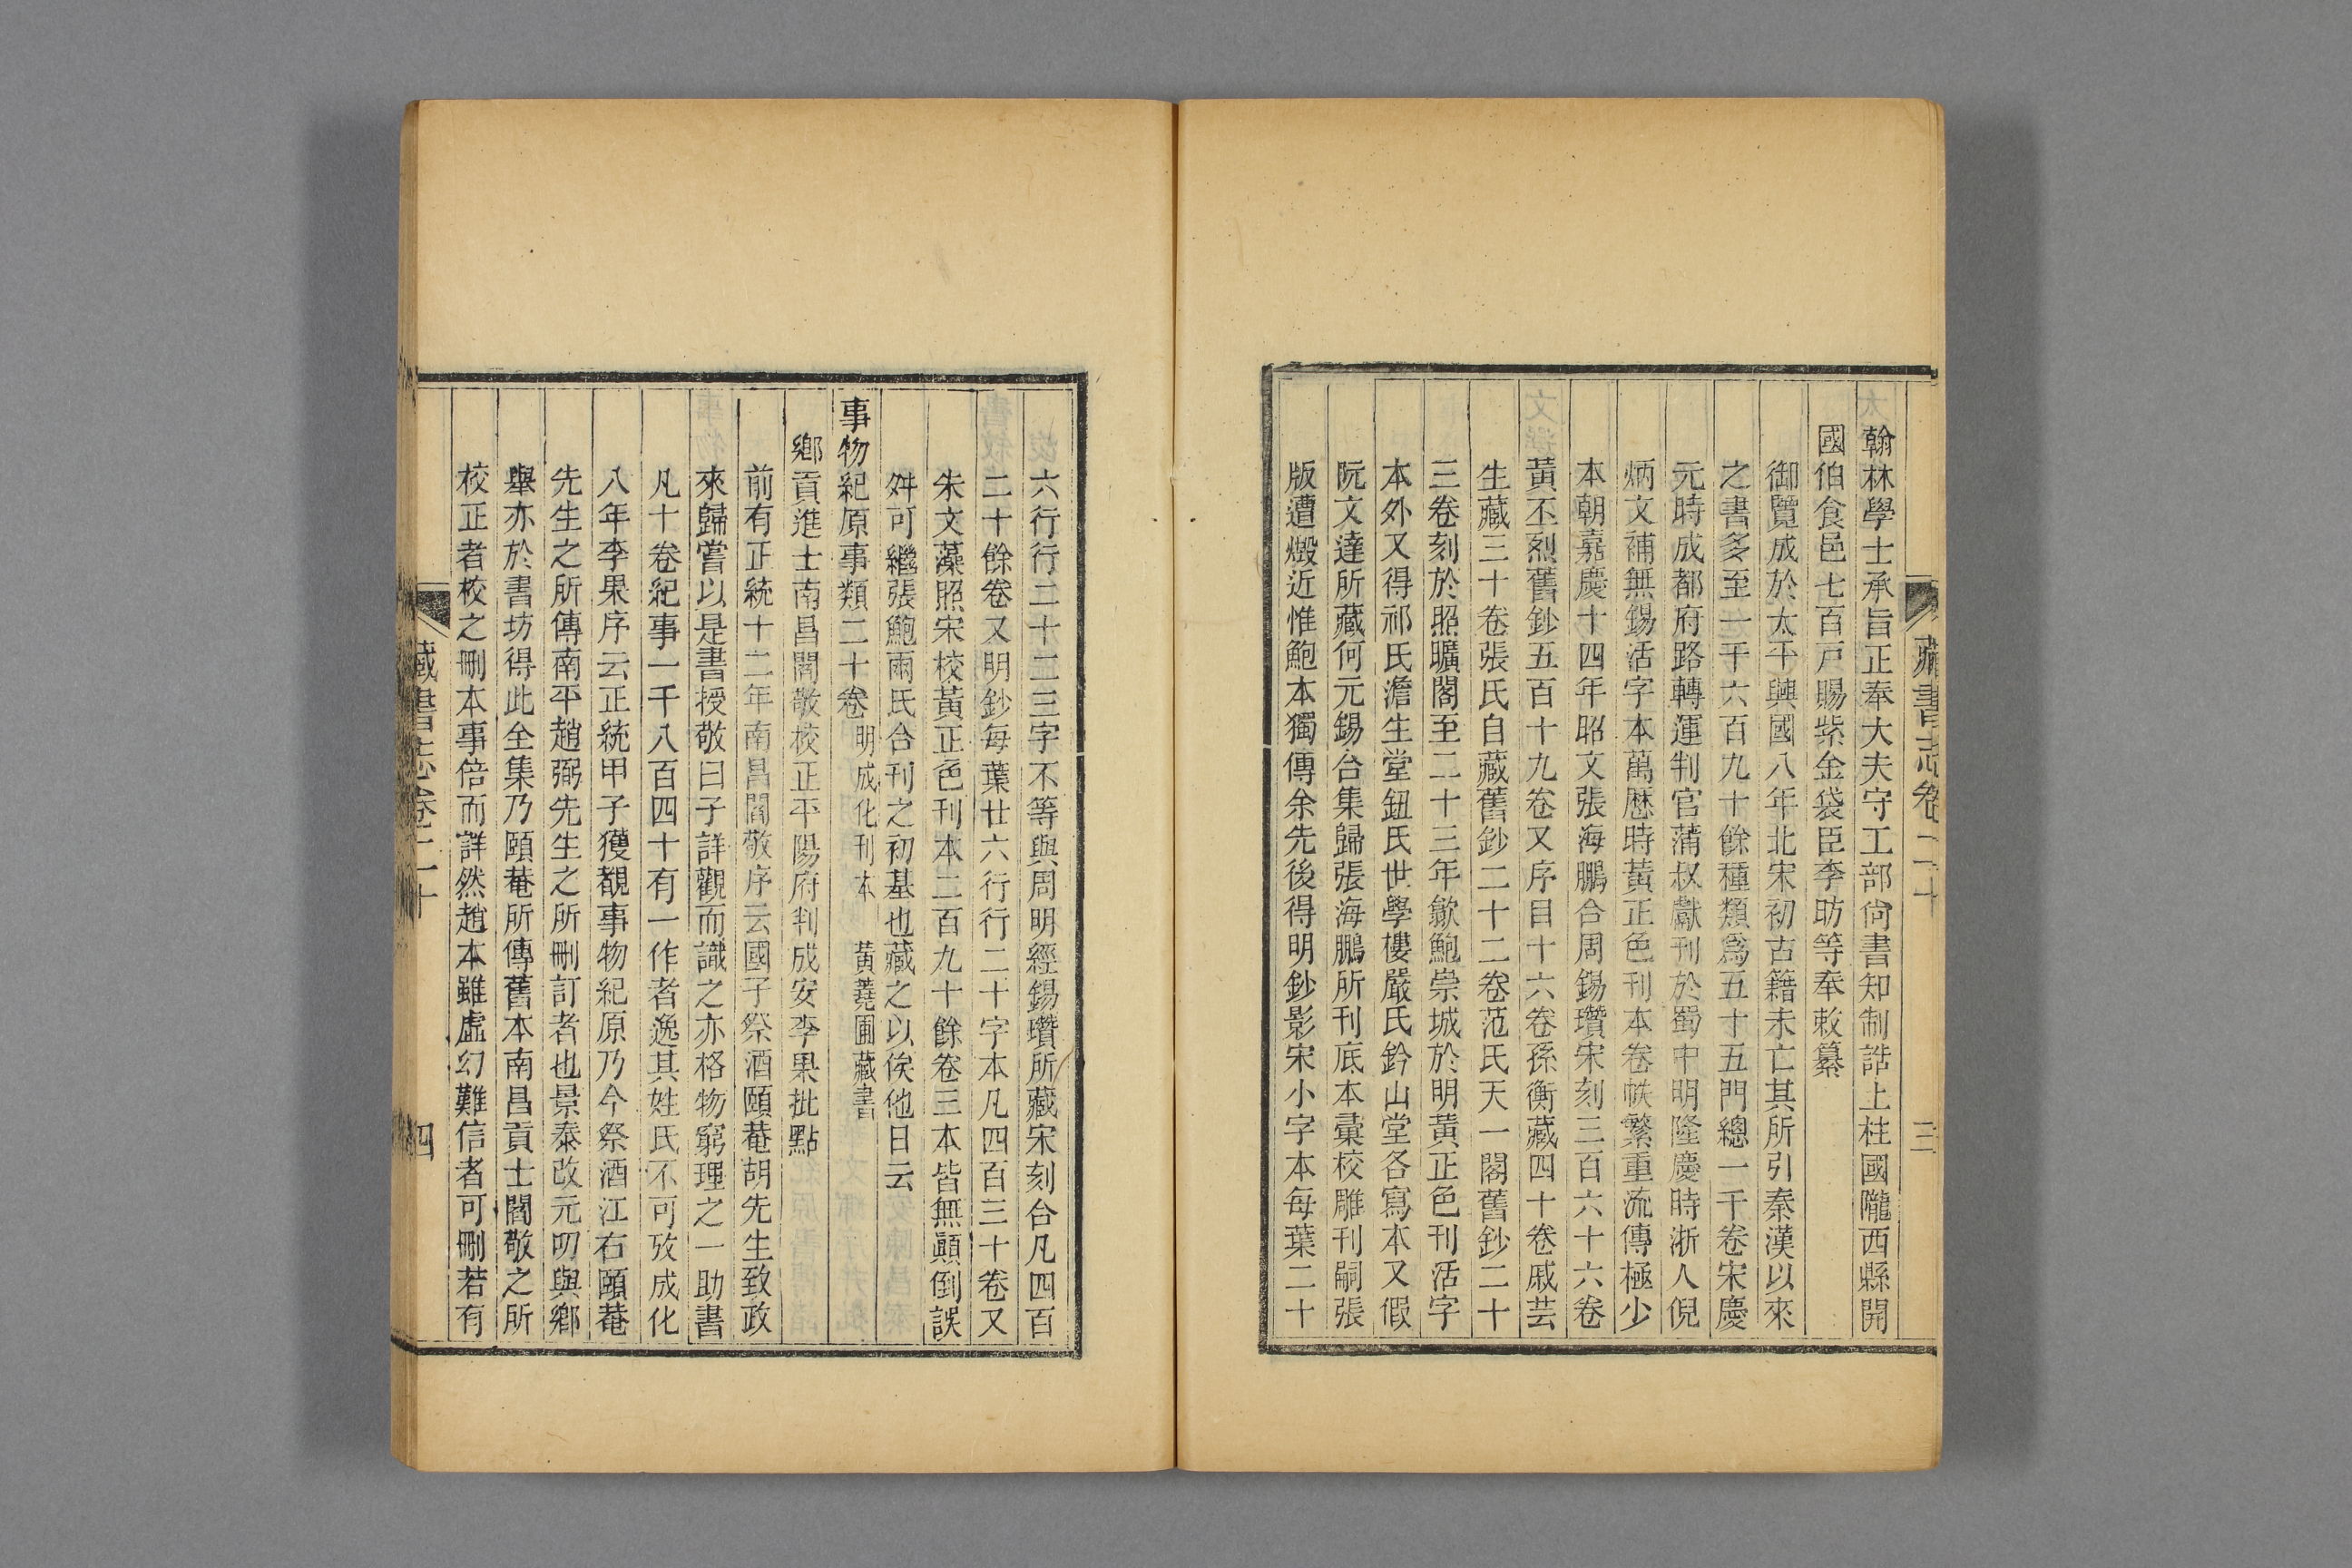 藏書志卷二十
三
翰林學士承旨正奉大夫守工部尙書知制誥上柱國隴西縣開
國伯食邑七百戸賜紫金袋臣李昉等奉敕纂
御覽成於太平興國八年北宋初古籍未亡其所引秦漢以來
之書多至一千六百九十餘種類爲五十五門總一千卷宋慶
元時成都府路轉運判官蒲叔獻刊於蜀中明隆慶時浙人倪
炳文補無錫活字本萬厯時黃正色刊本卷帙繁重流傳極少
本朝嘉慶十四年昭文張海鵬合周錫瓚宋刻三百六十六卷
黃丕烈舊鈔五百十九卷又序目十六卷孫衡藏四十卷戚芸
生藏三十卷張氏自藏舊鈔二十二卷范氏天一閣舊鈔二十
三卷刻於照曠閣至二十三年歙鮑崇城於明黃正色刊活字
本外又得祁氏澹生堂鈕氏世學樓嚴氏鈐山堂各寫本又假
阮文達所藏何元錫合集歸張海鵬所刊底本彙校雕刊嗣張
版遭燬近惟鮑本獨傳余先後得明鈔影宋小字本每葉二十
六行行二十二三字不等與周明經錫瓚所藏宋刻合凡四百
二十餘卷又明鈔每葉廿六行行二十字本凡四百三十卷又
朱文藻照宋校黃正色刊本二百九十餘卷三本皆無顚倒誤
舛可繼張鮑兩氏合刊之初基也藏之以俟他日云
事物紀原事類二十卷 明成化刊本 黃蕘圃藏書
鄉貢進士南昌閻敬校正平陽府判成安李果批點
前有正統十二年南昌閻敬序云國子祭酒頤菴胡先生致政
來歸嘗以是書授敬曰子詳觀而識之亦格物窮理之一助書
凡十卷紀事一千八百四十有一作者逸其姓氏不可攷成化
八年李果序云正統甲子獲覩事物紀原乃今祭酒江右頤菴
先生之所傳南平趙弼先生之所刪訂者也景泰改元叨與鄉
舉亦於書坊得此全集乃頤菴所傳舊本南昌貢士閻敬之所
校正者校之刪本事倍而詳然趙本雖虛幻難信者可刪若有
藏書志卷二十
四